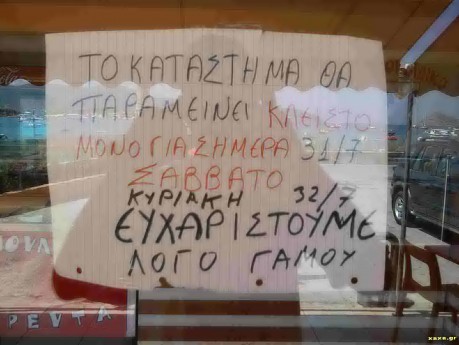 ΤΟ ΚΑΤΑΣΤΗΜΑ ΘΑ
ΠΑΡΑΜΕΙΝΕΙ ΚΛΕΙΣΤΟ
ΜΟΝΟ ΓΙΑ ΣΗΜΕΡΑ 31/7
ΣΑΒΒΑΤΟ
ΚΥΡΙΑΚΗ 32/7
ΕΥΧΑΡΙΣΤΟΥΜΕ
ΛΟΓΟ ΓΑΜΟΥ
ΡΕΥΤΑ
xaxa.gr